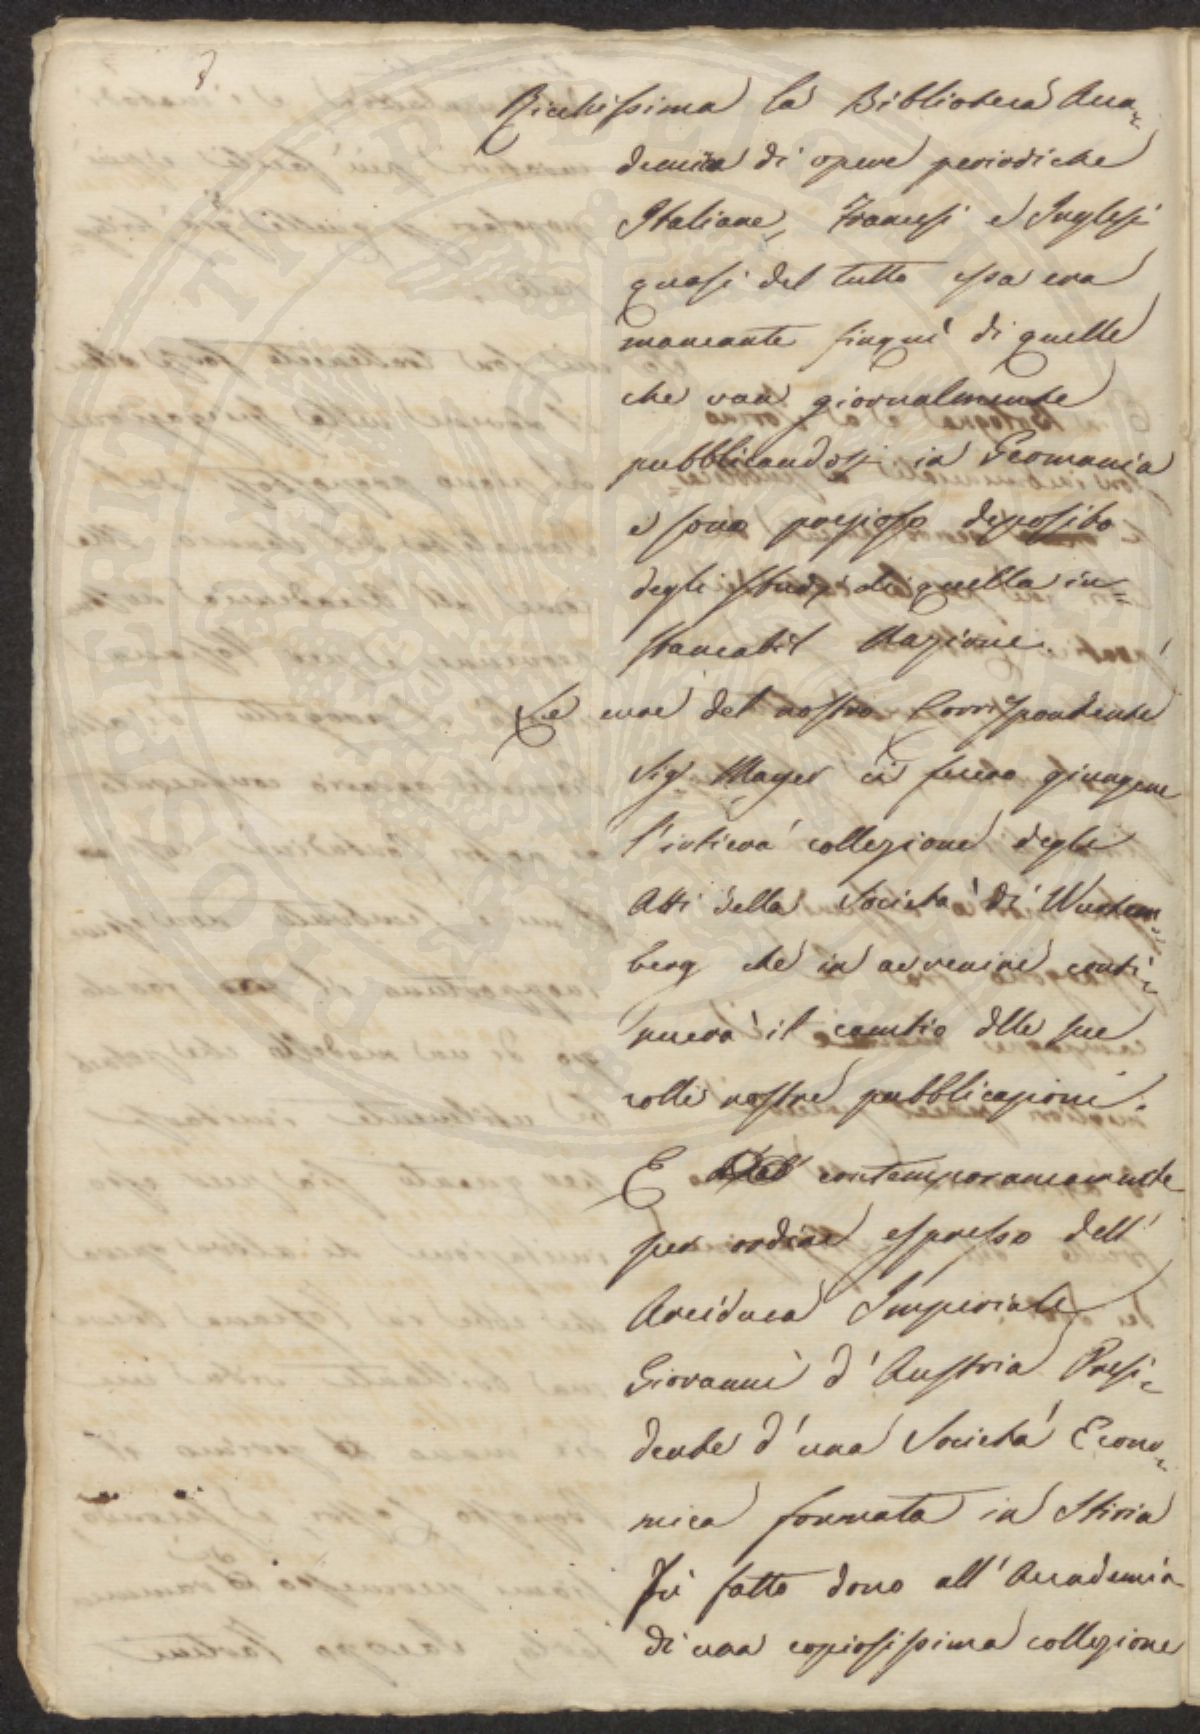 8
Ricchissima la Biblioteca Acca=
demica di opere periodiche
Italiane, Francesi e Inglesi
quasi del tutto essa era
mancante finqui di quelle
che van giornalmente
pubblicandosi in Germania
e sono prezioso deposito
degli studj di quella in=
stancabil Nazione.
Le cure del nostro Corrispondente
Sigr Mayer ci fecero giungere
l'intiera collezione degli
Atti della Società di Wurtem=
berg che in avvenire conti=
nuerà il cambio dlle sue
colle nostre pubblicazioni.
E contemporaneamente
per ordine espresso dell'
Arciduca Imperiale
Giovanni d'Austria Presi=
dente d'una Società Econo=
mica formata in Stiria
Fù fatto dono all'Accademia
di una copiosissima collezione
PROSPERITATI PUBLICAE